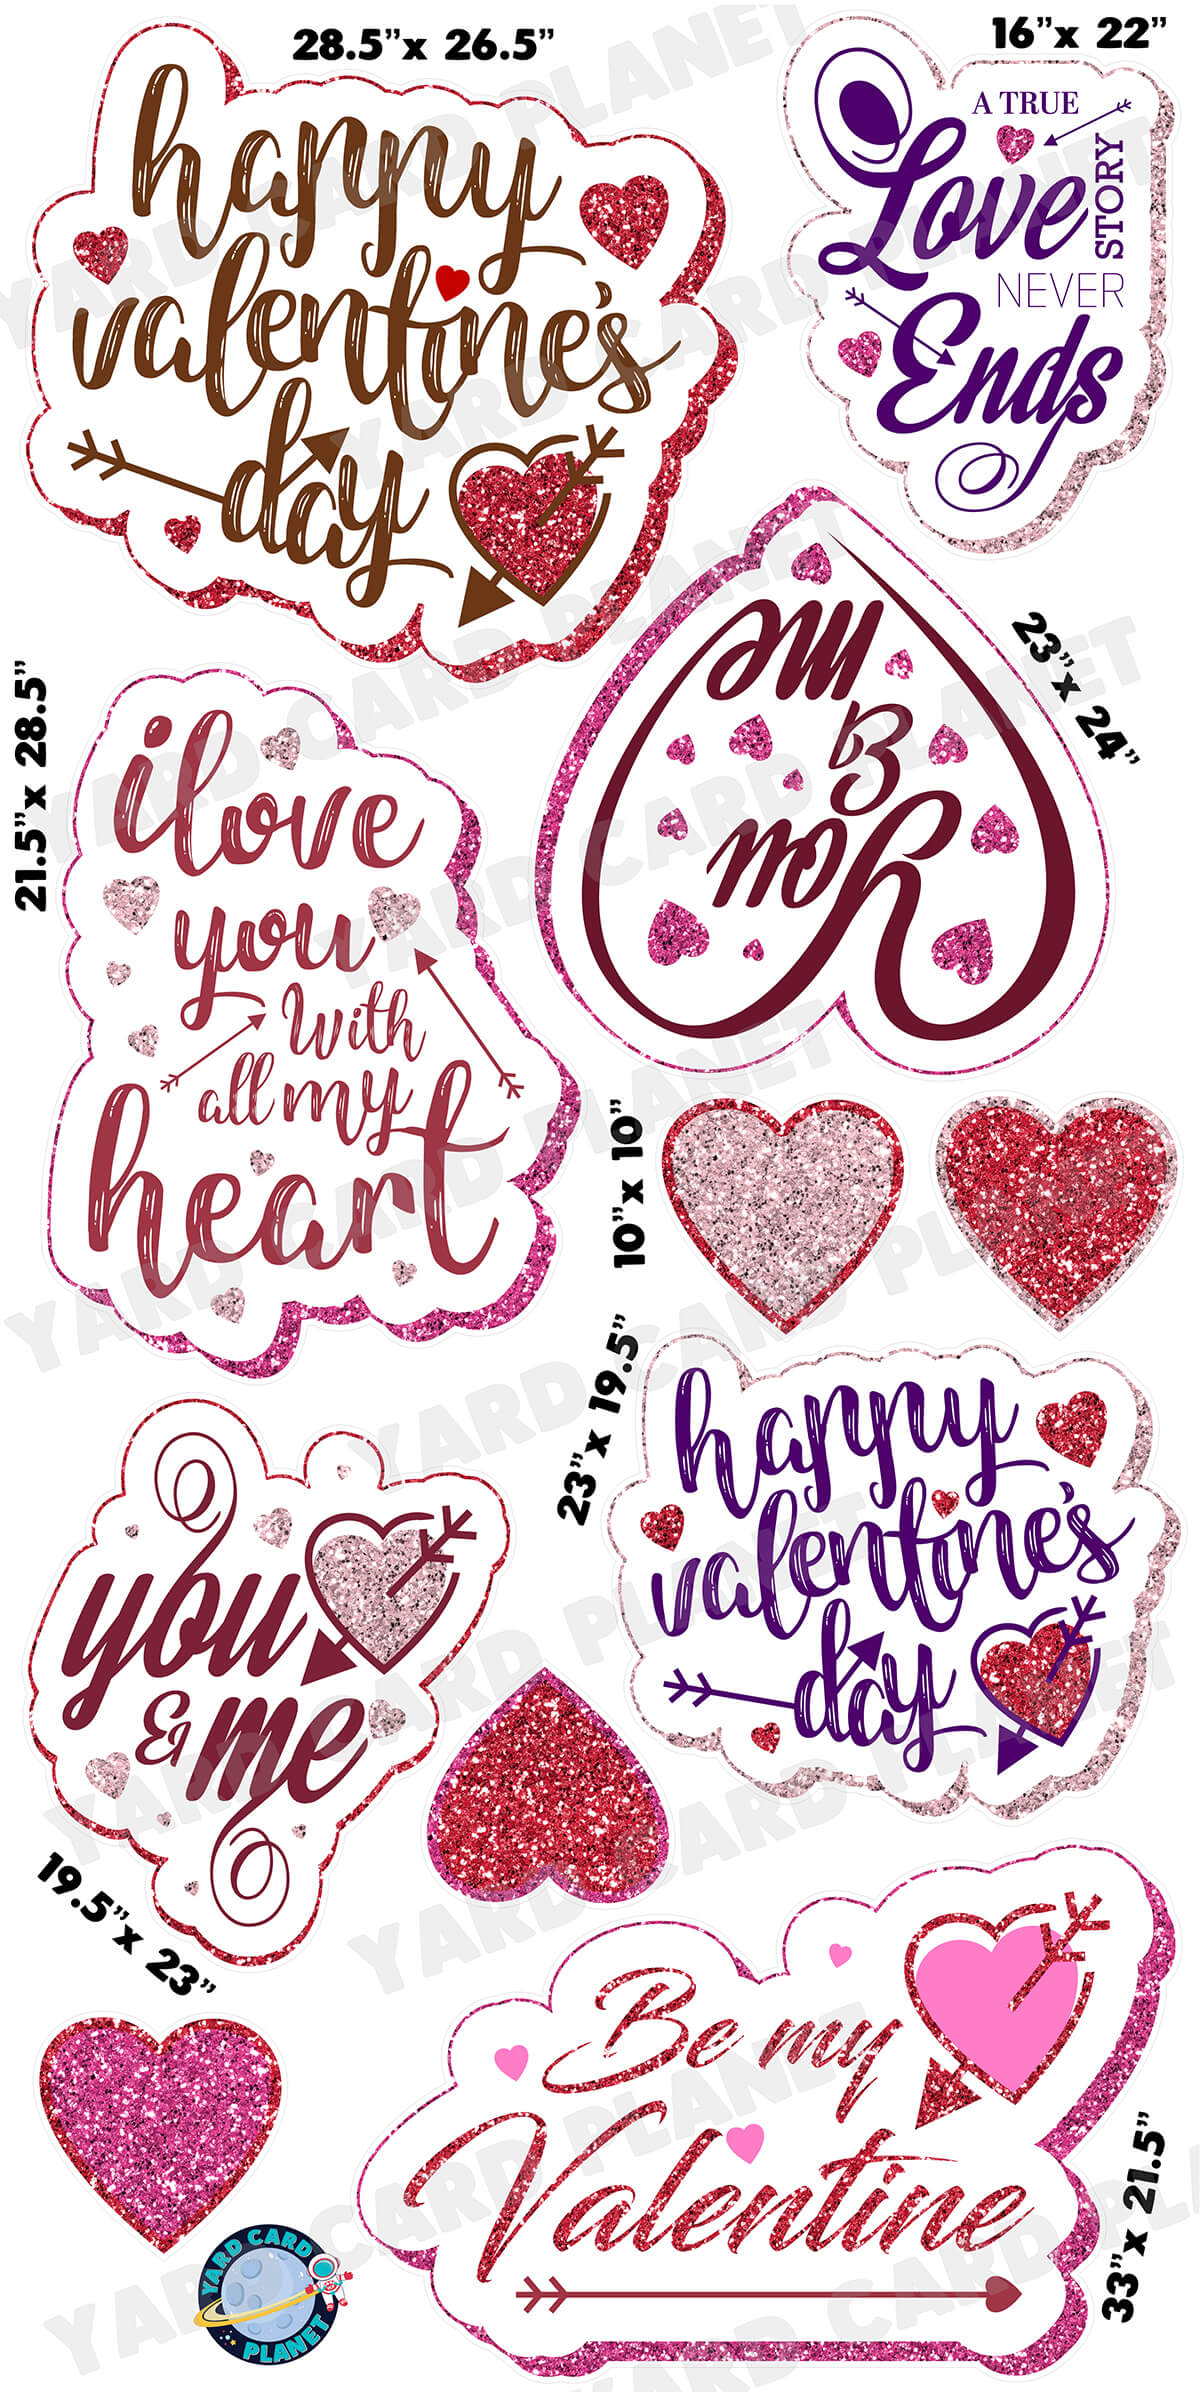 28.5”x 26.5”
happy
valentine's
day
16”x 22”
A TRUE
Love
STORY
NEVER
Ends
23”x 24”
you
&
me
21.5”x 28.5”
i love
you
with
all my
heart
10”x 10”
23”x 19.5”
happy
valentine's
day
you
& me
19.5”x 23”
Be my
Valentine
33”x 21.5”
YARD CARD
PLANET
YARD CARD PLANET